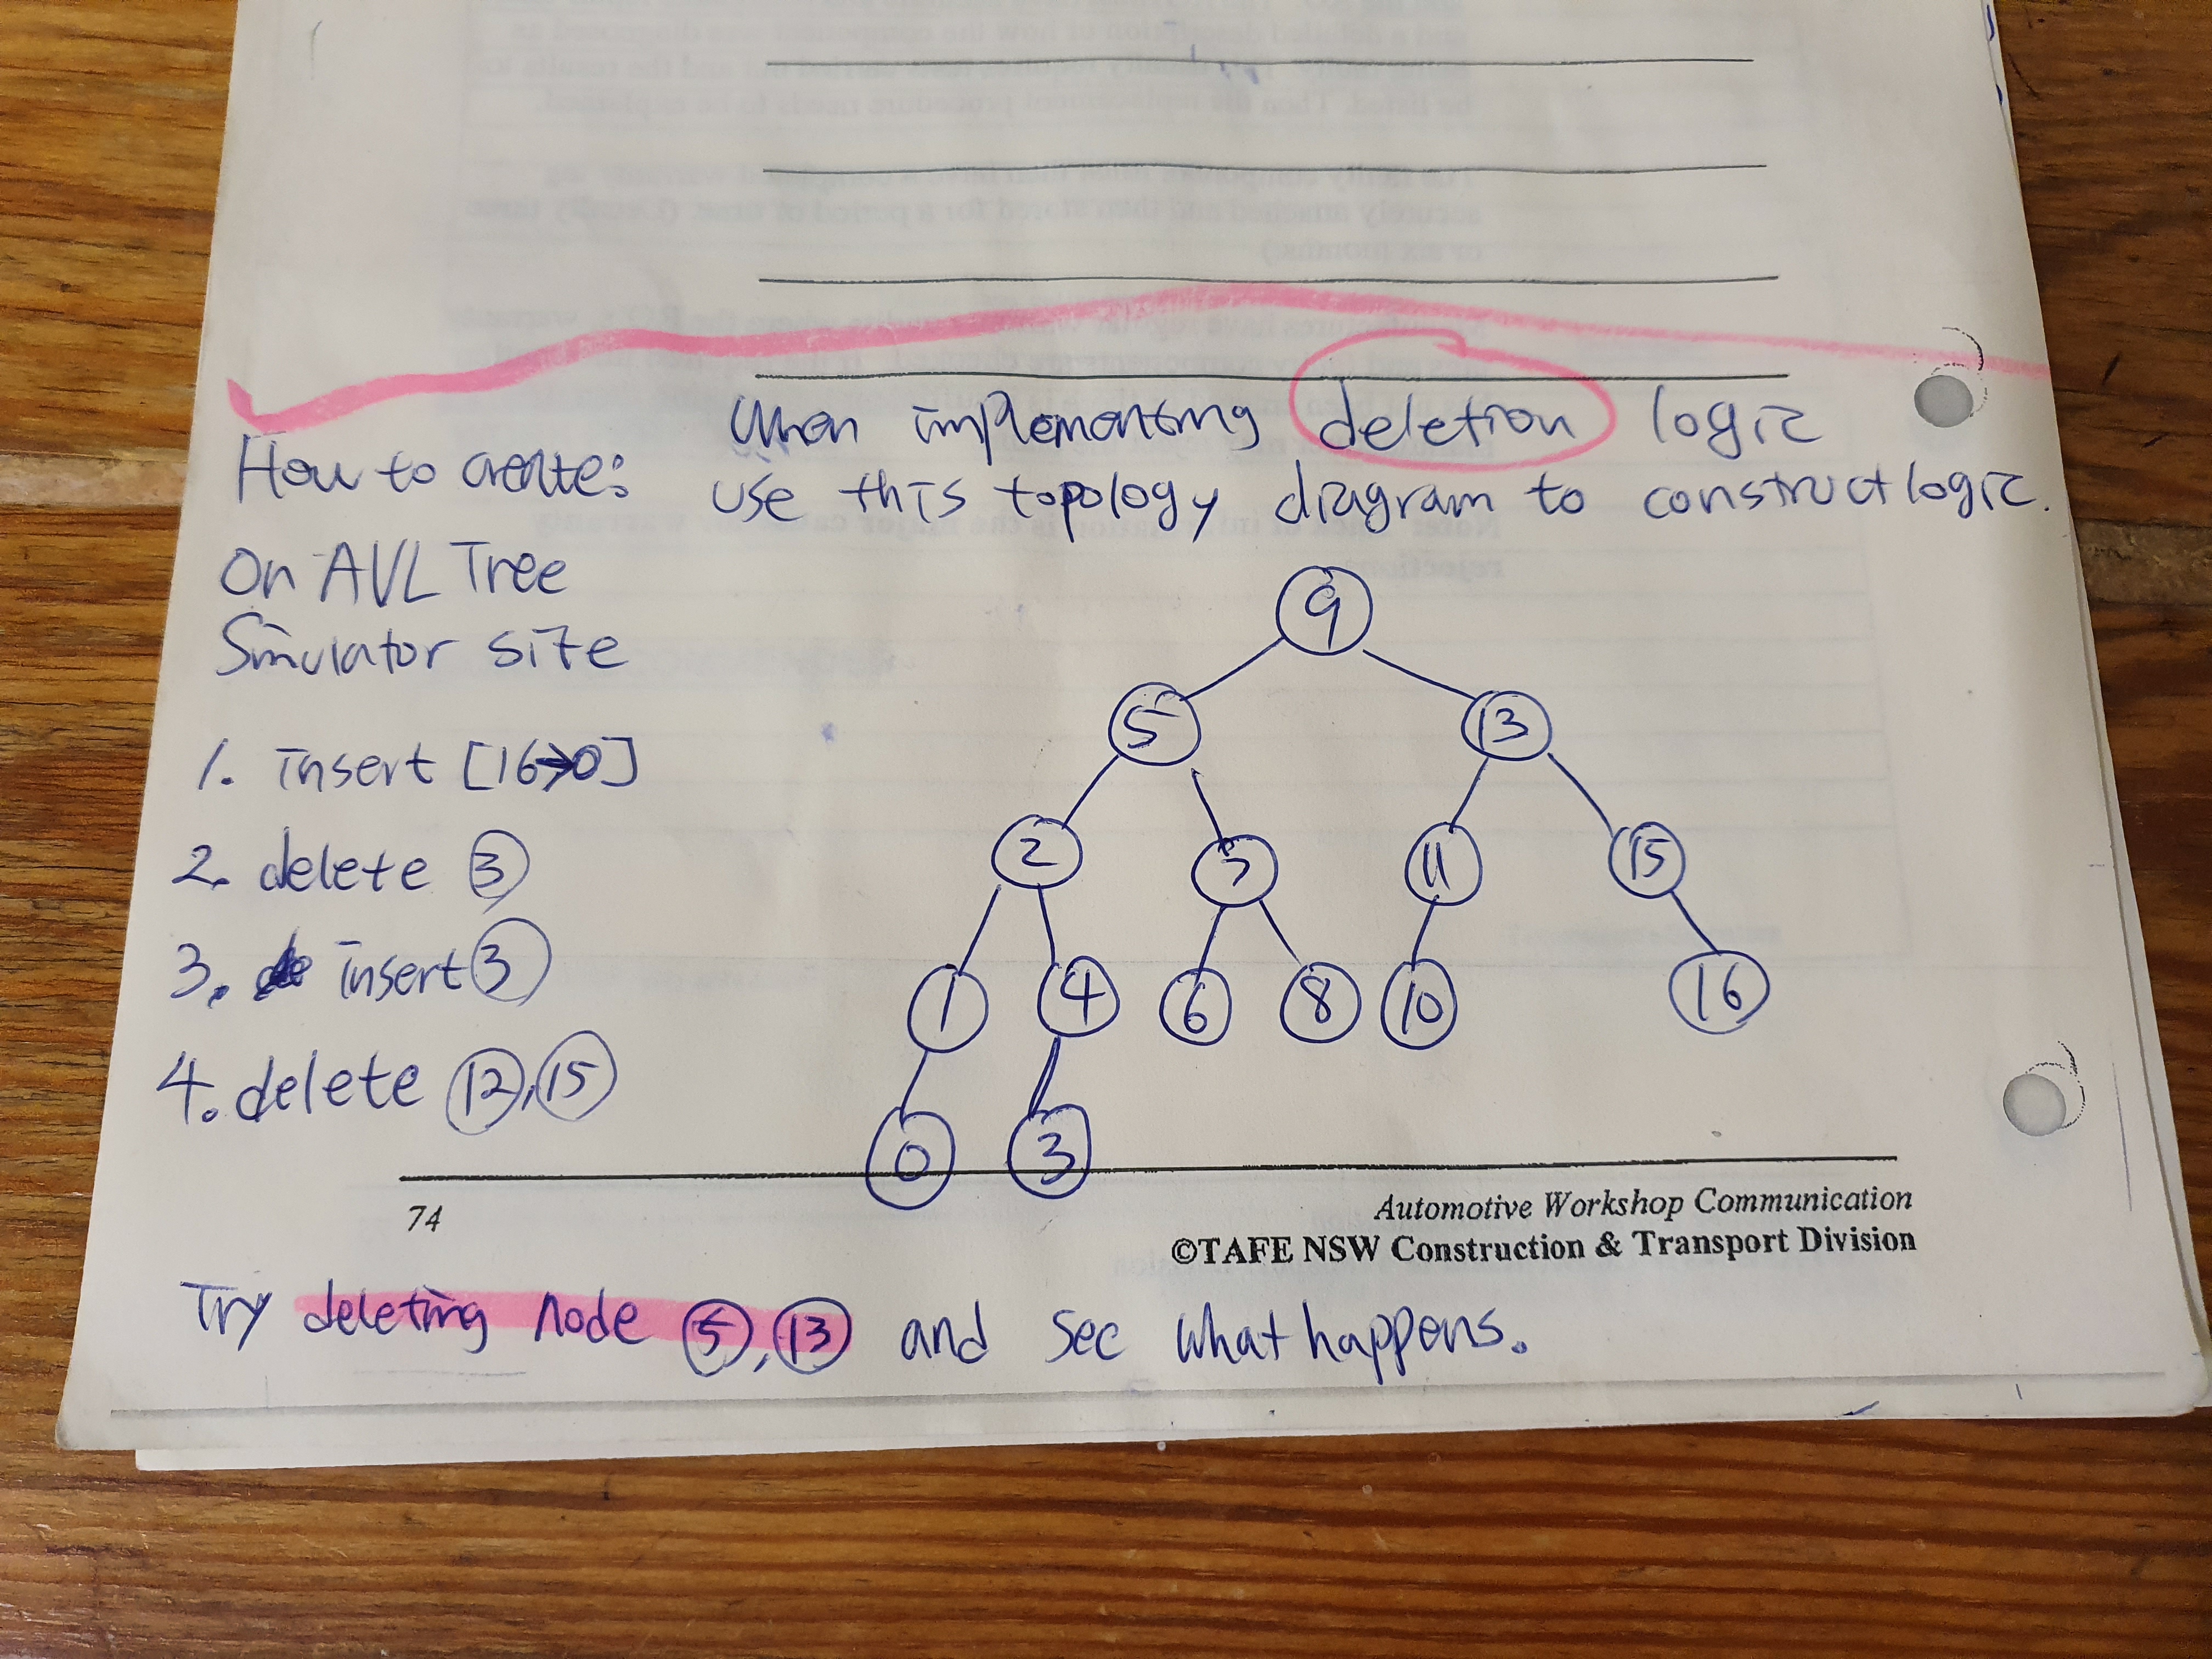 When implementing deletion logic
use this topology diagram to construct logic.
How to create:
On AVL Tree
Simulator site
1. insert [16→0]
2. delete 3
3. insert 3
4. delete 12, 15
9
5 13
2 7 11 15
1 4 6 8 10 16
0 3
74
Automotive Workshop Communication
©TAFE NSW Construction & Transport Division
Try deleting node 5, 13 and see what happens.